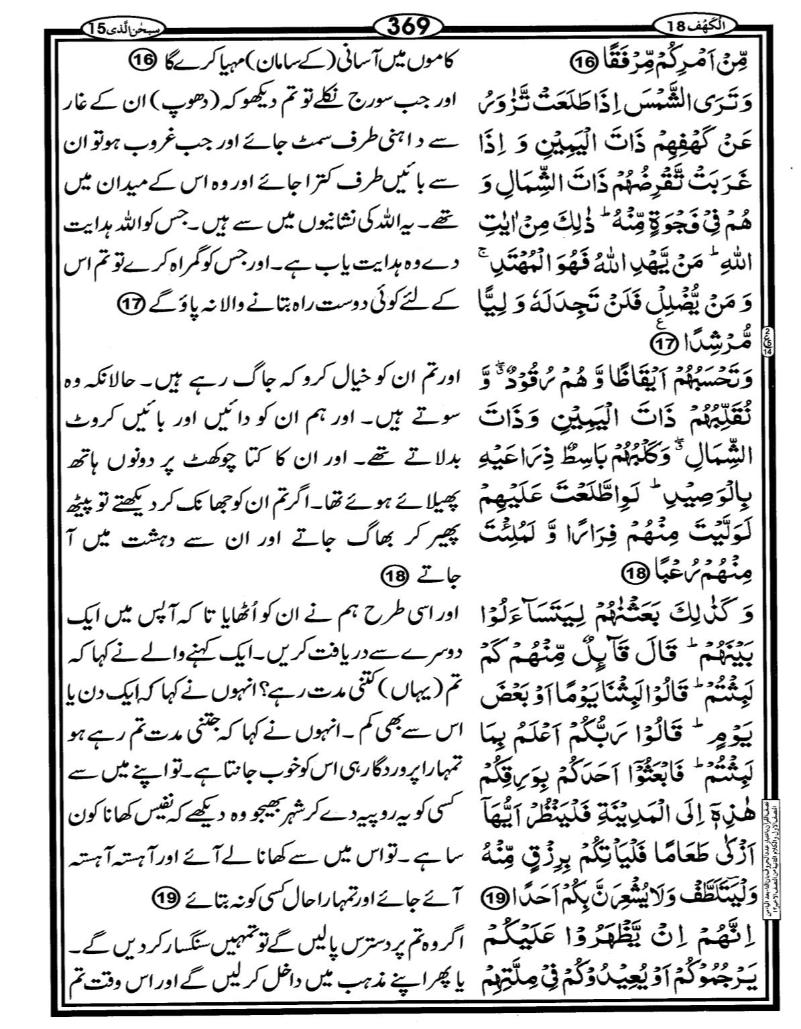 الکھف 18
369
سبحٰن الّذی 15
مِّنْ اَمْرِكُمْ مِّرْفَقًا ⑯
وَ تَرَى الشَّمْسَ اِذَا طَلَعَتْ تَّزٰوَرُ
عَنْ كَهْفِهِمْ ذَاتَ الْيَمِيْنِ وَ اِذَا
غَرَبَتْ تَّقْرِضُهُمْ ذَاتَ الشِّمَالِ وَ
هُمْ فِيْ فَجْوَةٍ مِّنْهُ ؕ ذٰلِكَ مِنْ اٰيٰتِ
اللّٰهِ ؕ مَنْ يَّهْدِ اللّٰهُ فَهُوَ الْمُهْتَدِ ۚ
وَ مَنْ يُّضْلِلْ فَلَنْ تَجِدَ لَهٗ وَ لِيًّا
مُّرْشِدًا ⑰ ع
وَ تَحْسَبُهُمْ اَيْقَاظًا وَّ هُمْ رُقُوْدٌ ۖۗ وَّ
نُقَلِّبُهُمْ ذَاتَ الْيَمِيْنِ وَ ذَاتَ
الشِّمَالِ ۖۗ وَ كَلْبُهُمْ بَاسِطٌ ذِرَاعَيْهِ
بِالْوَصِيْدِ ؕ لَوِ اطَّلَعْتَ عَلَيْهِمْ
لَوَلَّيْتَ مِنْهُمْ فِرَارًا وَّ لَمُلِئْتَ
مِنْهُمْ رُعْبًا ⑱
وَ كَذٰلِكَ بَعَثْنٰهُمْ لِيَتَسَآءَلُوْا
بَيْنَهُمْ ؕ قَالَ قَآىِٕلٌ مِّنْهُمْ كَمْ
لَبِثْتُمْ ؕ قَالُوْا لَبِثْنَا يَوْمًا اَوْ بَعْضَ
يَوْمٍ ؕ قَالُوْا رَبُّكُمْ اَعْلَمُ بِمَا
لَبِثْتُمْ ؕ فَابْعَثُوْۤا اَحَدَكُمْ بِوَرِقِكُمْ
هٰذِهٖۤ اِلَى الْمَدِيْنَةِ فَلْيَنْظُرْ اَيُّهَاۤ
اَزْكٰى طَعَامًا فَلْيَاْتِكُمْ بِرِزْقٍ مِّنْهُ
وَلْيَتَلَطَّفْ وَ لَا يُشْعِرَنَّ بِكُمْ اَحَدًا ⑲
اِنَّهُمْ اِنْ يَّظْهَرُوْا عَلَيْكُمْ
يَرْجُمُوْكُمْ اَوْ يُعِيْدُوْكُمْ فِيْ مِلَّتِهِمْ
کاموں میں آسانی (کے سامان) مہیا کرے گا ⑯
اور جب سورج نکلے تو تم دیکھو کہ (دھوپ) ان کے غار
سے داہنی طرف سمٹ جائے اور جب غروب ہو تو ان
سے بائیں طرف کترا جائے اور وہ اس کے میدان میں
تھے۔ یہ اللہ کی نشانیوں میں سے ہیں۔ جس کو اللہ ہدایت
دے وہ ہدایت یاب ہے۔ اور جس کو گمراہ کرے تو تم اس
کے لئے کوئی دوست راہ بتانے والا نہ پاؤ گے ⑰
اور تم ان کو خیال کرو کہ جاگ رہے ہیں۔ حالانکہ وہ
سوتے ہیں۔ اور ہم ان کو دائیں اور بائیں کروٹ
بدلاتے تھے۔ اور ان کا کتا چوکھٹ پر دونوں ہاتھ
پھیلائے ہوئے تھا۔ اگر تم ان کو جھانک کر دیکھتے تو پیٹھ
پھیر کر بھاگ جاتے اور ان سے دہشت میں آ
جاتے ⑱
اور اسی طرح ہم نے ان کو اُٹھایا تا کہ آپس میں ایک
دوسرے سے دریافت کریں۔ ایک کہنے والے نے کہا کہ
تم (یہاں) کتنی مدت رہے؟ انہوں نے کہا کہ ایک دن یا
اس سے بھی کم۔ انہوں نے کہا کہ جتنی مدت تم رہے ہو
تمہارا پروردگار ہی اس کو خوب جانتا ہے۔ تو اپنے میں سے
کسی کو یہ روپیہ دے کر شہر بھیجو وہ دیکھے کہ نفیس کھانا کون
سا ہے۔ تو اس میں سے کھانا لے آئے اور آہستہ آہستہ
آئے جائے اور تمہارا حال کسی کو نہ بتائے ⑲
اگر وہ تم پر دسترس پالیں گے تو تمہیں سنگسار کر دیں گے۔
یا پھر اپنے مذہب میں داخل کر لیں گے اور اس وقت تم